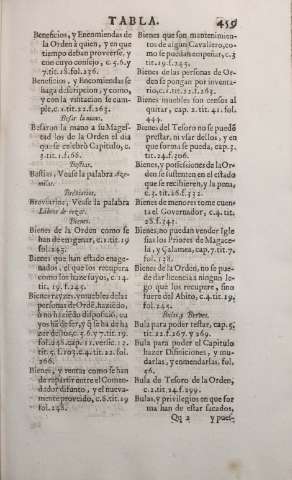 TABLA. 459
Beneficios, y Encomiendas de
la Orden à quien, y en que
tiempo deban proverse, y
con cuyo consejo, c.5.6.y
7.tit.18.fol.236.
Beneficios, y Encomiendas se
haga descripcion, y como,
y con la visitacion se cum-
ple, c.1.tit.22.fol.263.
Besar la mano.
Besaron la mano a su Magest
ad los de la Orden el dia
que se celebrò Capitulo, c.
3.tit.1.f.68.
Bestias.
Bestias, Vease la palabra
Breviarios.
Breviarios, Vease la palabra
Libros de rezar.
Bienes.
Bienes de la Orden como se
han de enagenar, c.1.tit.19
fol.243.
Bienes que han estado enage-
nados, el que los recupere
como los haze suyos, c.14.
tit. 19. f.245.
Bienes rayzes, y muebles de las
personas de Ordē, haziedo,
ò no haziēdo disposiciō, cu
yos hā de ser, y q̃ se ha de ha-
zer dellos, c.5.6.y 7.tit.19.
tit.22.fol.
266.
Bienes, y rentas como se han
de repartir entre el Comen-
dador difunto, y el nueva-
mente proveido, c.6.tit.19
fol.248.
Bienes que son mantenimien-
tos de algun Cavallero, co-
mo se puedan empeñar, c.3
tit.19.f.245.
Bienes de las personas de Or-
den se pongan por inventa-
rio, c.1.tit.22.fol.263.
Bienes muebles son censos al
quitar, cap. 2. tit. 41. fol.
444.
Bienes del Tesoro no se puedē
prestar, ni vsar dellos, y en
que forma se pueda, cap. 3.
tit.24.f.306.
Bienes, y possessiones de la Or
den se sustenten en el estado
que se recibieren, y la pena,
c.3. tit.26.f.332.
Bienes de menores tome cuen
ta el Governador, c.4.tit.
28.f.345.
Bienes, no puedan vender Igle
sias los Priores de Magace-
la, y Galamea, cap.7.tit.7.
fol. 138.
Bienes de la Orden, no se pue-
de dar licencia à ningun le-
go que los recupere, sino
fuere del Abito, c.4.tit.19,
fol. 242.
Bulas, y Breves.
Bula para poder testar, cap.5,
tit.22.f.267.y 269.
Bula para poder el Capitulo
hazer Difiniciones, y mu-
darlas, y enmendarlas. fol.
56.
Bula de Tesoro de la Orden,
c.2.tit.24.fol.299.
Bulas, y privilegios en que for
ma han de estar sacados,
Qq 2 y pues-